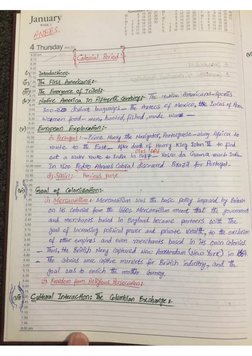 January
WEEK 1
4 Thursday
Colonial Period
i) Introduction:-
ii) The First Americans:-
iii) The Emergence of Tribes:-
iv) Native America In Fifteenth Century:- The native Americans spoke
300- distinct languages - the Aztecs of Mexico, the Incas of Peru
Women food - men, hunted, fished, made
v) European Exploration:-
a) Portugal:- Prince Henry the Navigator, Portuguese - along Africa to
route to the East. After death of Henry King John II to find
out a water route to India in Vasco da Gama reach India
In 1500 Pedro Alvares Cabral discovered Brazil for Portugal.
b) Spain:- Previous page
vi) Goal of Colonisation:-
i) Mercantilism:- Mercantilism was the basic policy imposed by Britain
on its colonies from the 1660s. Mercantilism meant that the government
and merchants based in England became partners with the
goal of increasing political power and private wealth, to the exclusion
of other empires and even merchants based in its own colonies.
- Thus, the British Navy captured New Amsterdam (New York) in
- The colonies were captive markets for British industry, and the
goal was to enrich the mother country.
ii) Freedom from Religious Persecution:-
vii) Cultural Interaction: The Columbian Exchange:-